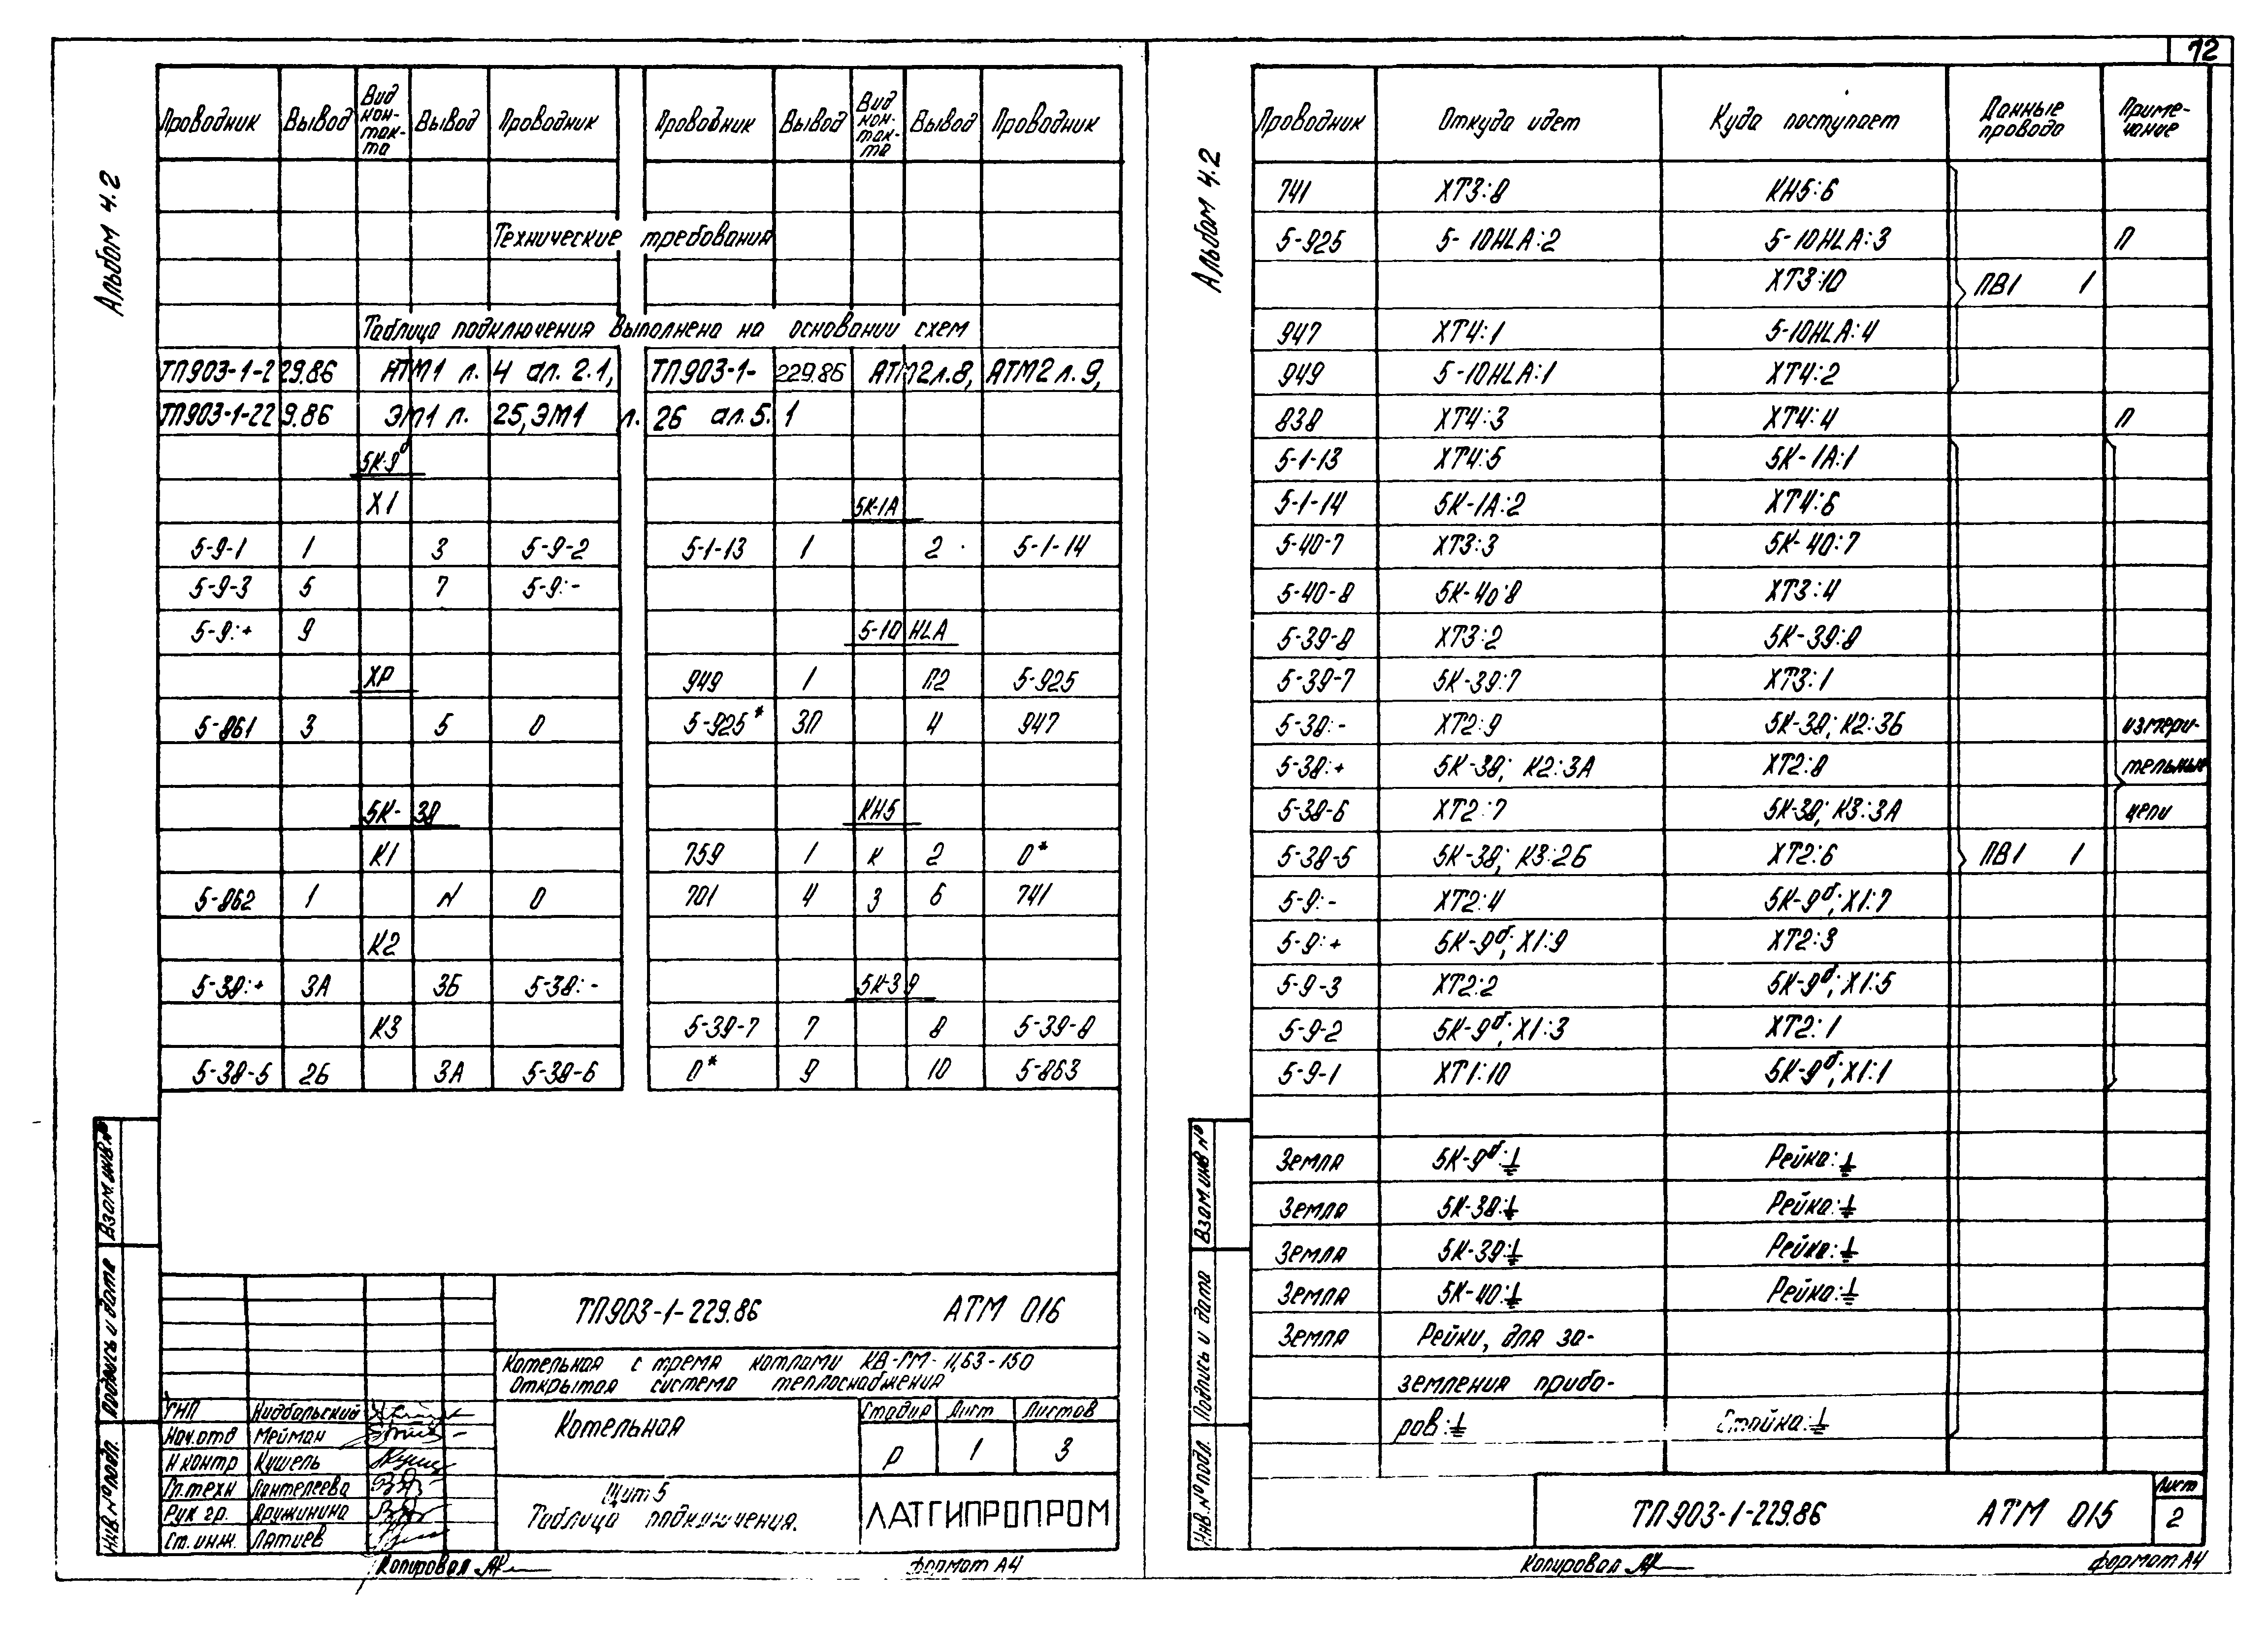 12
Альбом 4.2
Проводник Вывод Вид кон-так-та Вывод Проводник Проводник Вывод Вид кон-так-та Вывод Проводник
Технические требования
Таблица подключения выполнена на основании схем
ТП903-1-229.86 АТМ1 л. 4 ал. 2.1, ТП903-1-229.86 АТМ2 л.8, АТМ2 л.9,
ТП903-1-229.86 ЭМ1 л. 25, ЭМ1 л. 26 ал. 5.1
5К-9б
Х1 5К-1А
5-9-1 1 3 5-9-2 5-1-13 1 2 5-1-14
5-9-3 5 7 5-9:-
5-9:+ 9 5-10 HLA
ХР 949 1 П2 5-925
5-861 3 5 0 5-925* 3П 4 947
5К-38 КН5
К1 759 1 К 2 0*
5-862 1 N 0 701 4 З 6 741
К2
5-38:+ 3А 3Б 5-38:- 5К-39
К3 5-39-7 7 8 5-39-8
5-38-5 2Б 3А 5-38-6 0* 9 10 5-863
Взам.инв.№
Подпись и дата
Инв.№подл.
ТП903-1-229.86 АТМ 016
Котельная с тремя котлами КВ-ГМ-11,63-150
Открытая система теплоснабжения
ГИП Нидбальский
Нач.отд Мейман
Н контр Кушель
Гл.техн Пантелеева
Рук гр. Дружинина
Ст.инж. Латиев
Котельная
Стадия Лист Листов
Р 1 3
Щит 5
Таблица подключения.
ЛАТГИПРОПРОМ
Копировал
формат А4
Альбом 4.2
Проводник Откуда идет Куда поступает Данные провода Приме-чание
741 ХТ3:8 КН5:6
5-925 5-10HLA:2 5-10HLA:3 П
ХТ3:10 ПВ1 1
947 ХТ4:1 5-10HLA:4
949 5-10HLA:1 ХТ4:2
838 ХТ4:3 ХТ4:4 П
5-1-13 ХТ4:5 5К-1А:1
5-1-14 5К-1А:2 ХТ4:6
5-40-7 ХТ3:3 5К-40:7
5-40-8 5К-40:8 ХТ3:4
5-39-8 ХТ3:2 5К-39:8
5-39-7 5К-39:7 ХТ3:1
5-38:- ХТ2:9 5К-38; К2:3Б измери-
5-38:+ 5К-38; К2:3А ХТ2:8 тельные
5-38-6 ХТ2:7 5К-38; К3:3А цепи
5-38-5 5К-38; К3:2Б ХТ2:6 ПВ1 1
5-9:- ХТ2:4 5К-9б; Х1:7
5-9:+ 5К-9б; Х1:9 ХТ2:3
5-9-3 ХТ2:2 5К-9б; Х1:5
5-9-2 5К-9б; Х1:3 ХТ2:1
5-9-1 ХТ1:10 5К-9б; Х1:1
Земля 5К-9б:⏚ Рейка:⏚
Земля 5К-38:⏚ Рейка:⏚
Земля 5К-39:⏚ Рейка:⏚
Земля 5К-40:⏚ Рейка:⏚
Земля Рейки, для за-
земления прибо-
ров:⏚ Стойка:⏚
Взам.инв №
Подпись и дата
Инв.№подл.
ТП903-1-229.86 АТМ 015
Лист
2
Копировал
формат А4